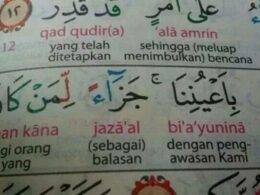 عَلَىٰ أَمْرٍ قَدْ قُدِرَ ۝١٢
'alā amrin qad qudir(a)
sehingga (meluap yang telah 12
menimbulkan) bencana ditetapkan
بِأَعْيُنِنَا ۚ جَزَآءً لِّمَنْ
bi'a'yuninā jazā'al kāna
dengan peng- (sebagai) orang
awasan Kami balasan yang